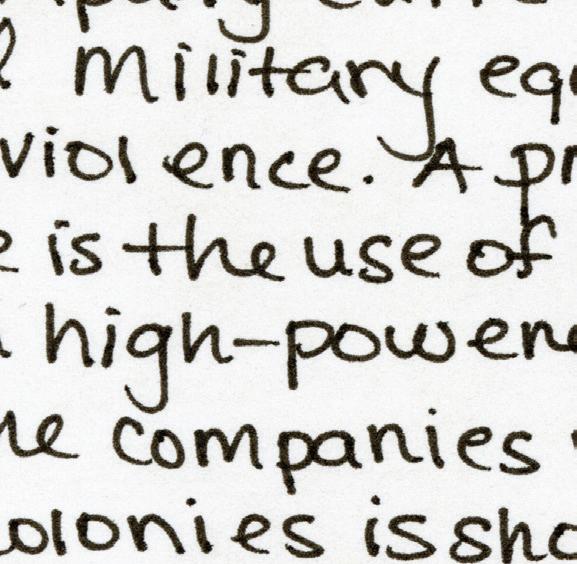 military equ
violence. A pr
is the use of
high-powere
he companies
colonies is sho